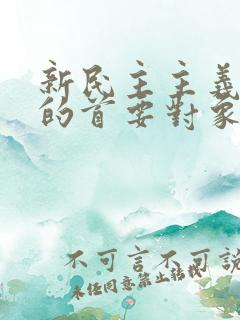 新民主主義
的首要對象
不可言不可說
未任同意禁止转载